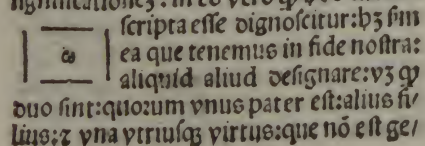 scripta esse dignoscitur:hꝫ ẜm
ea que tenemus in fide nostra:
aliquid aliud designare:vꝫ ꝙ
duo sint:quorum vnus pater est:alius fi/
lius:⁊ vna vtriusqꝫ virtus:que nõ est ge/